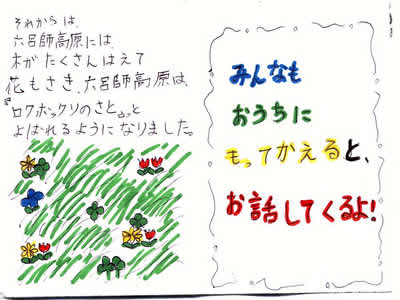 それからは、
六呂師高原には、
木がたくさんはえて
花もさき、六呂師高原は、
『ロクホックリのさと』と
よばれるようになりました。
みんなも
おうちに
もってかえると、
お話してくるよ!